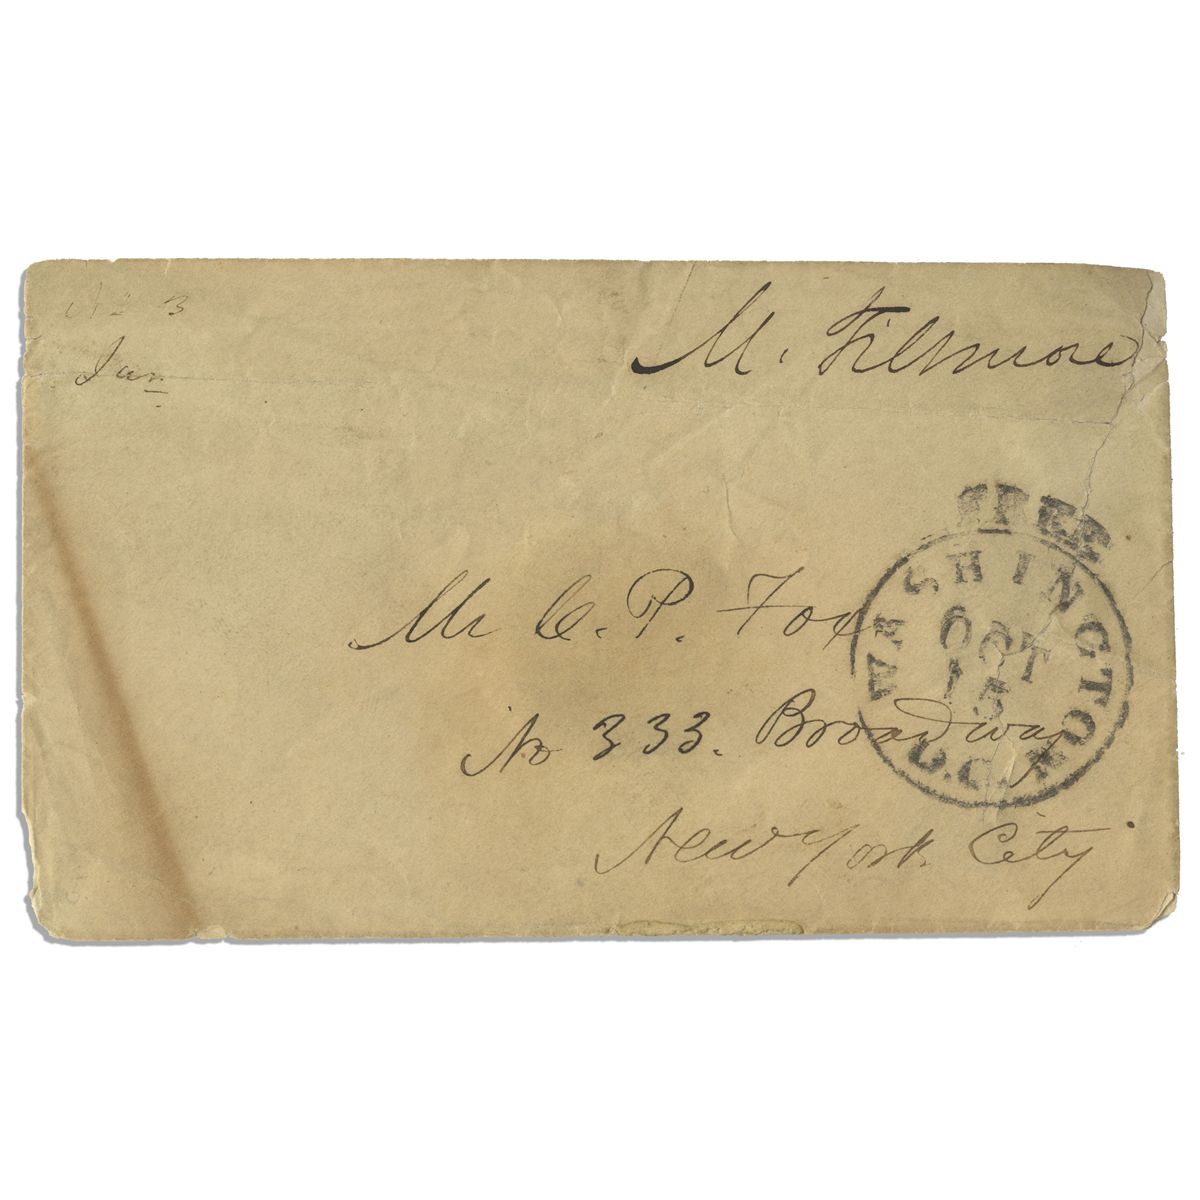 3
Jan
M. Fillmore
FREE
WASHINGTON
D.C.
OCT
15
Mr C. P. Fox
No 333. Broadway
New York City